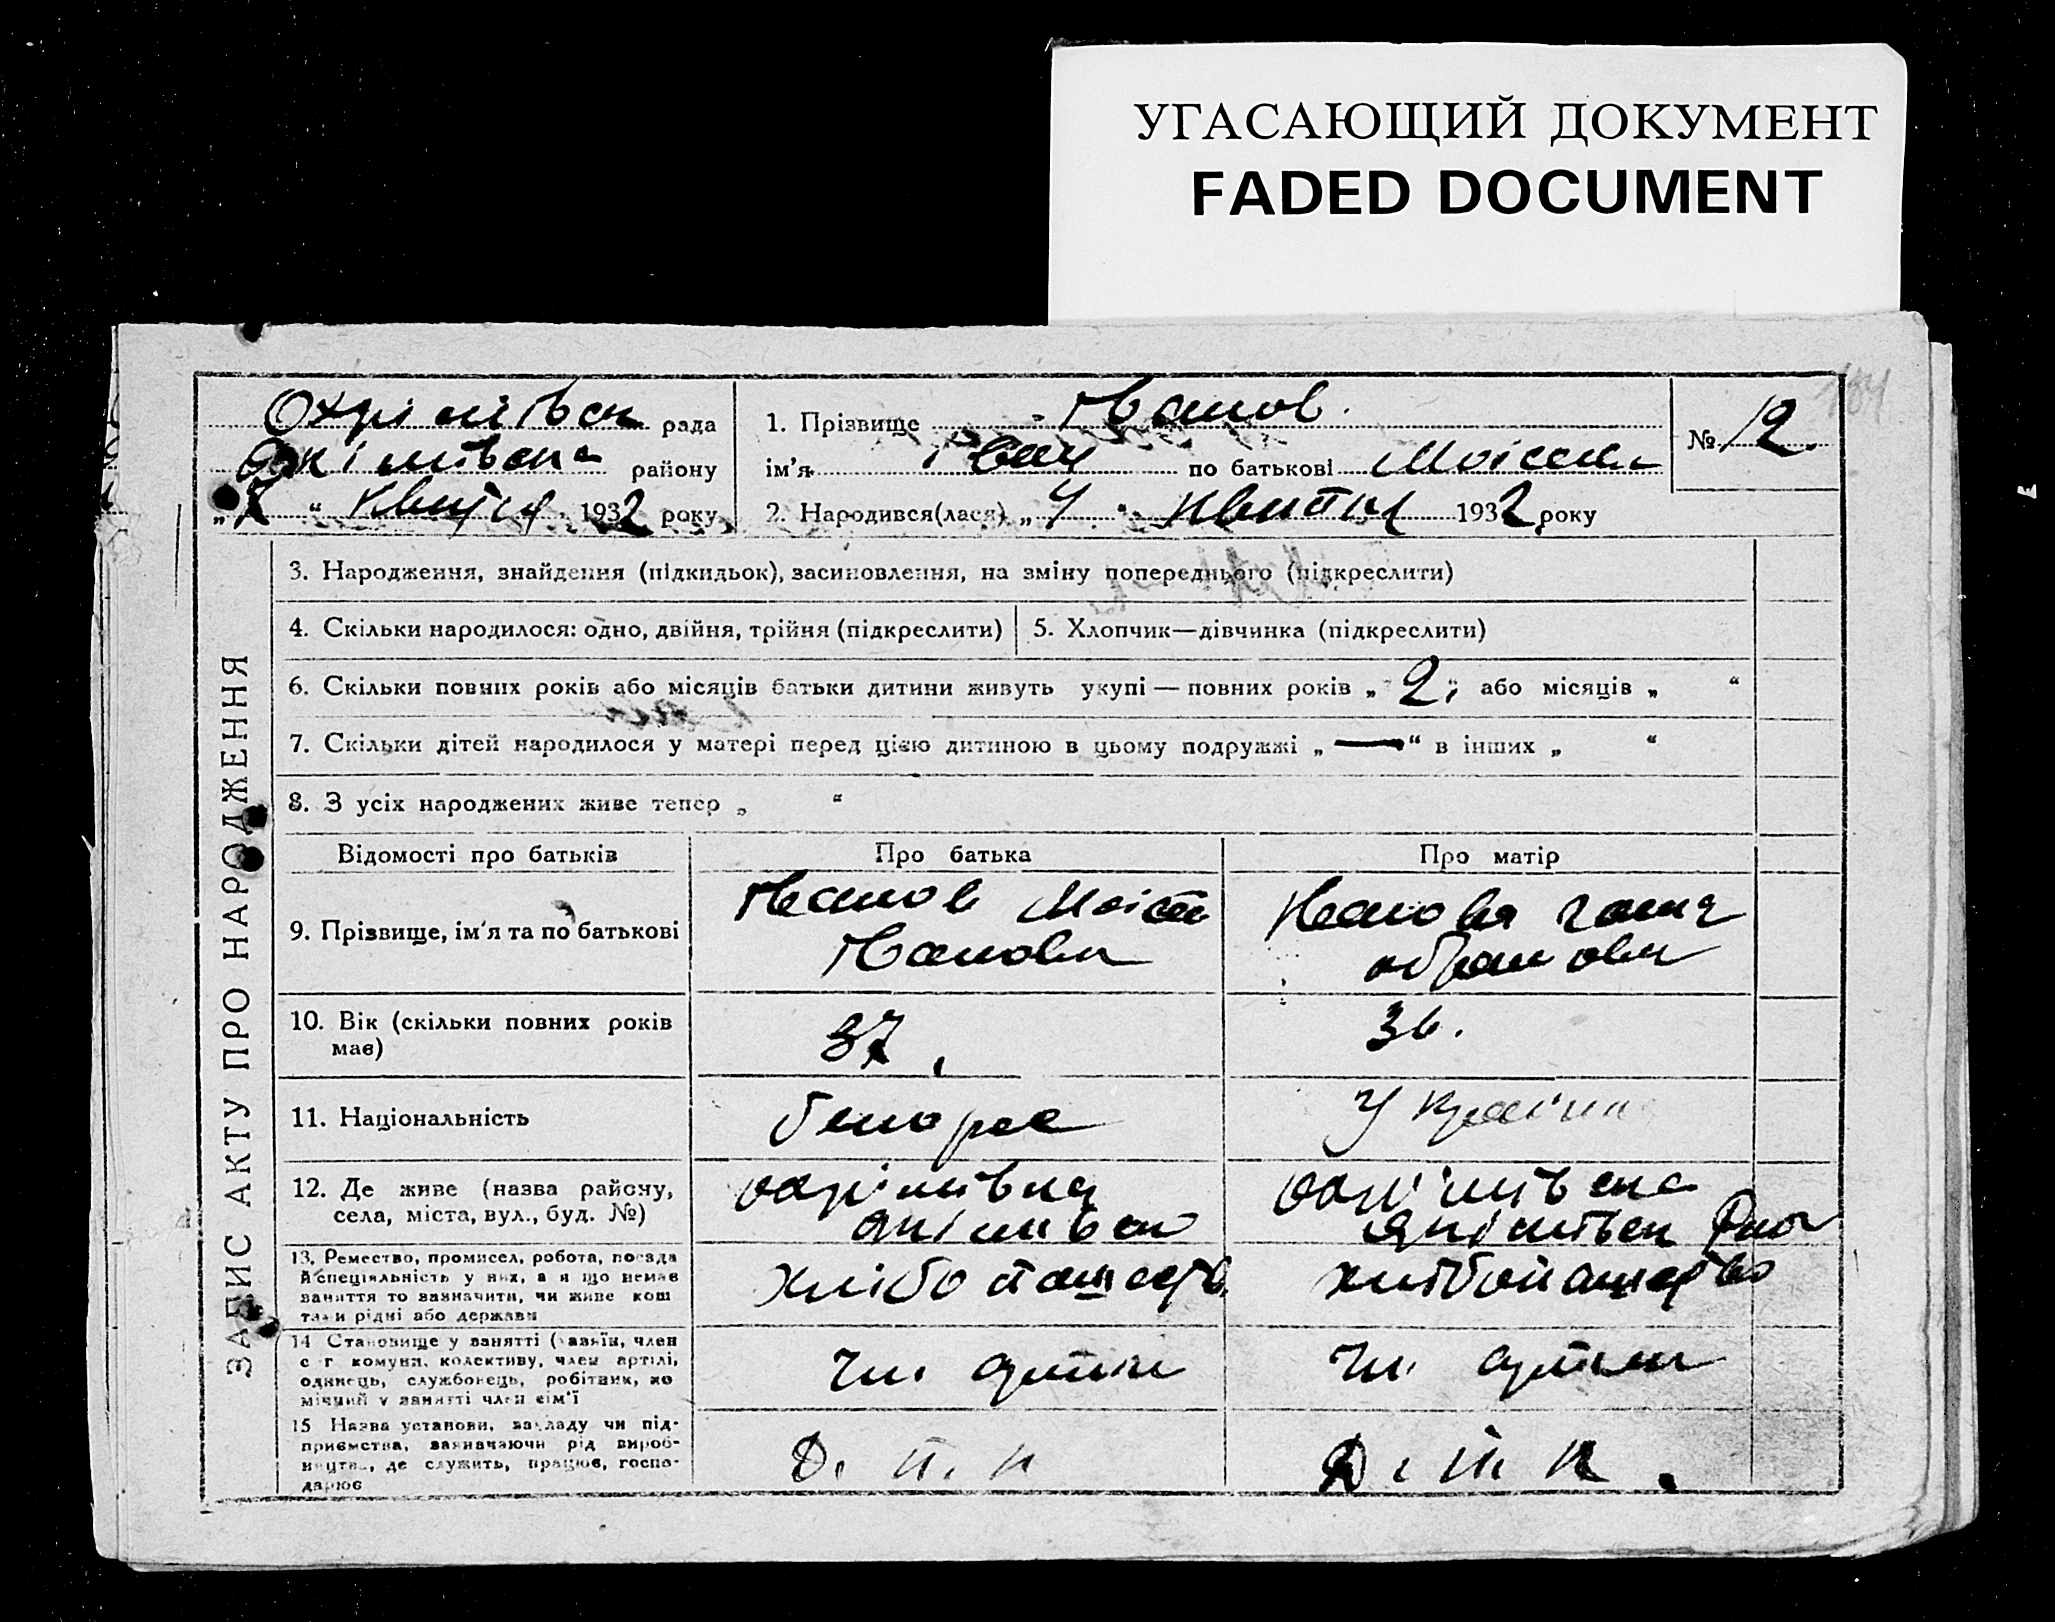 УГАСАЮЩИЙ ДОКУМЕНТ
FADED DOCUMENT
Охрімівськ рада
Якімівська району
„7“ Квітня 1932 року
1. Прізвище Іванов
ім’я Іван по батькові Моісеев
2. Народився(лася) „4“ Квітня 1932 року
№ 12
184
ЗАПИС АКТУ ПРО НАРОДЖЕННЯ
3. Народження, знайдення (підкидьок), засиновлення, на зміну попереднього (підкреслити)
4. Скільки народилося: одно, двійня, трійня (підкреслити)
5. Хлопчик—дівчинка (підкреслити)
6. Скільки повних років або місяців батьки дитини живуть укупі — повних років „2“ або місяців „ “
7. Скільки дітей народилося у матері перед цією дитиною в цьому подружжі „—“ в інших „ “
8. З усіх народжених живе тепер „ “
Відомості про батьків
Про батька
Про матір
9. Прізвище, ім’я та по батькові
Іванов Моісей
Іванови
Іванова Ганя
10. Вік (скільки повних років
має)
37
36.
11. Національність
білорус
Україн
12. Де живе (назва району,
села, міста, вул., буд. №)
Охрімівка
Якімівськ
Охрімівска
Якімівськ Рно
13. Ремество, промисел, робота, посада
й спеціяльність у них, а я що немає
заняття то зазначити, чи живе кош
тами рідні або держави
хлібопашеств
хлібопашество
14 Становище у занятті (хазяїн, член
с г комуни, колективу, член артілі,
одинець, службовець, робітник, по
мічний у занятті член сім’ї
Чл. артіли
Чл. артіли
15 Назва установи, закладу чи під-
приємства, зазначаючи рід вироб-
ництва, де служить, працює, госпо-
дарює